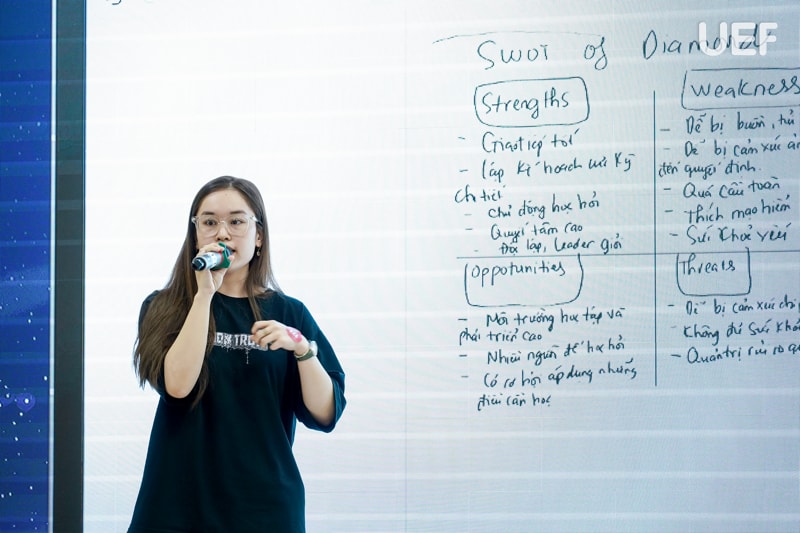 UEF
SWOT of Diamond
Strengths
- Giao tiếp tốt
- lập kế hoạch cực kỳ
chi tiết
- Chủ động học hỏi
- Quyết tâm cao
- Độc lập, leader giỏi
Weakness
- Dễ bị buồn, tủ
- Dễ bị cảm xúc ản
đến quyết định.
- Quá cầu toàn
- thích mạo hiểm
- Sức khoẻ yếu
Oppotunities
- Môi trường học tập và
phát triển cao
- Nhiều người để học hỏi
- Có cơ hội áp dụng những
điều cần học
Threats
- Dễ bị cảm xúc chi p
- Không đủ sức khỏ
- Quản trị rủi ro q